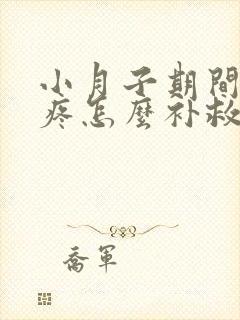 小月子期間
疼怎麼补救
喬軍